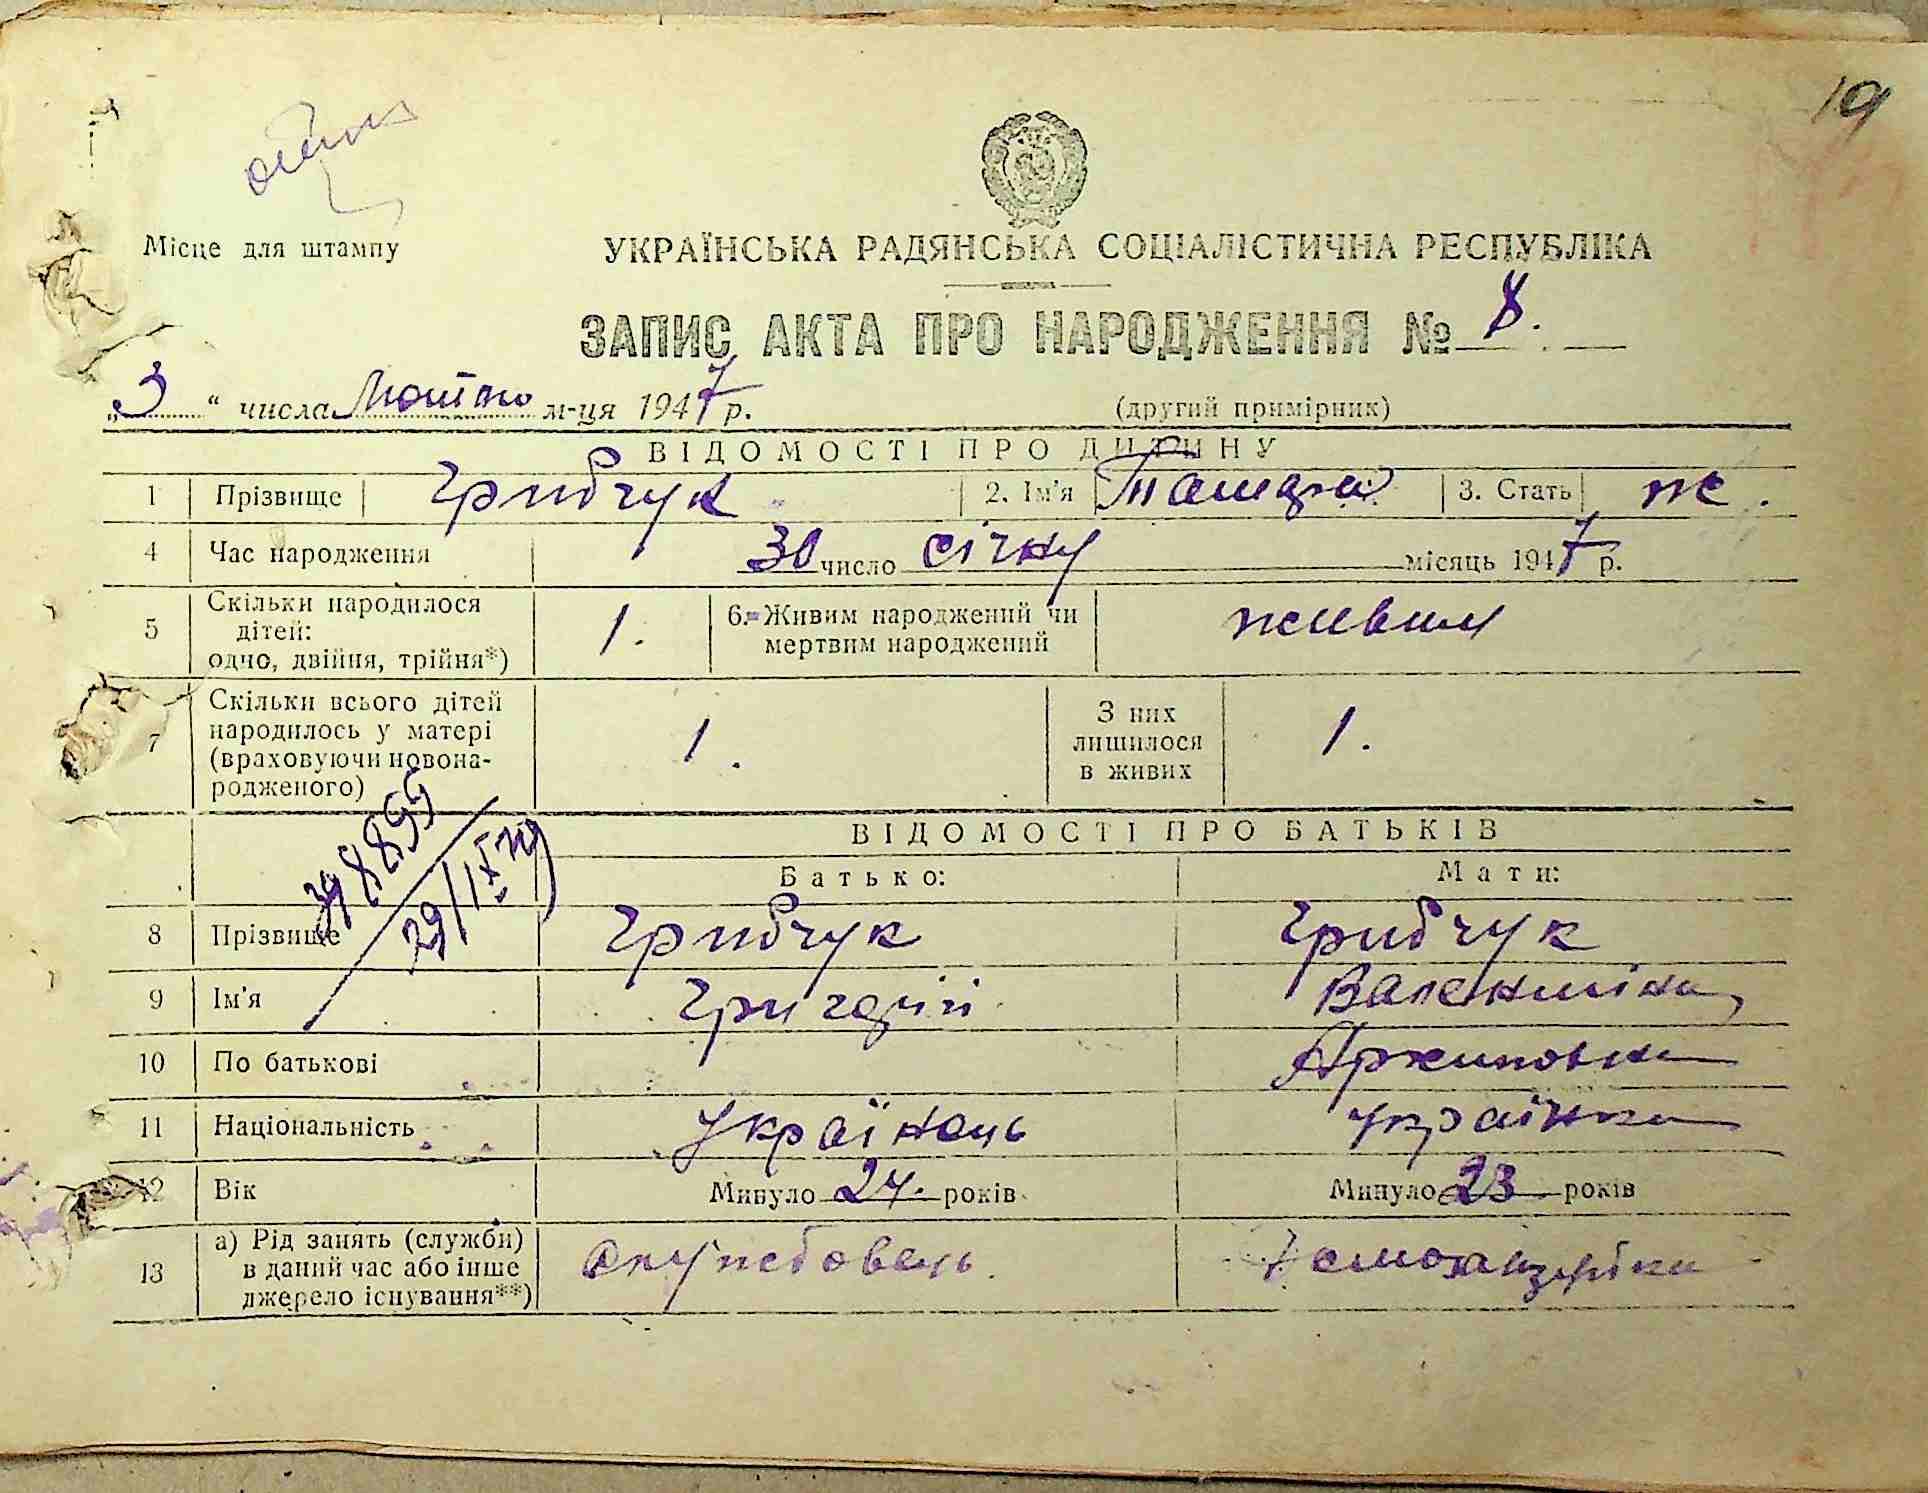 19
Місце для штампу
УКРАЇНСЬКА РАДЯНСЬКА СОЦІАЛІСТИЧНА РЕСПУБЛІКА
ЗАПИС АКТА ПРО НАРОДЖЕННЯ № 8.
„3“ числа Лютого м-ця 1947 р. (другий примірник)
ВІДОМОСТІ ПРО ДИТИНУ
1 Прізвище Грибчук 2. Ім'я 3. Стать ж.
4 Час народження 30 число січну місяць 1947 р.
5 Скільки народилося дітей: одно, двійня, трійня*) 1. 6. Живим народжений чи мертвим народжений живим
7 Скільки всього дітей народилось у матері (враховуючи новонародженого) 1. З них лишилося в живих 1.
ВІДОМОСТІ ПРО БАТЬКІВ
Батько: Мати:
8 Прізвище Грибчук Грибчук
9 Ім'я Григорій Валентіна
10 По батькові Архиповна
11 Національність Українець українка
12 Вік Минуло 24. років Минуло 23 років
13 а) Рід занять (служби) в даний час або інше джерело існування**) служебовець домохазяйка